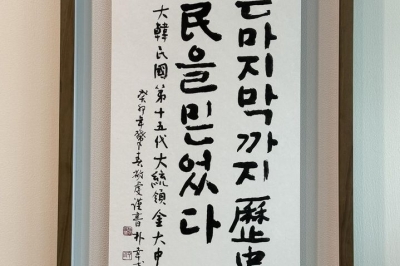 마지막까지 歷史
民을 믿었다
大韓民國 第十五代 大統領 金大中
癸卯年 春 謹書 朴幸